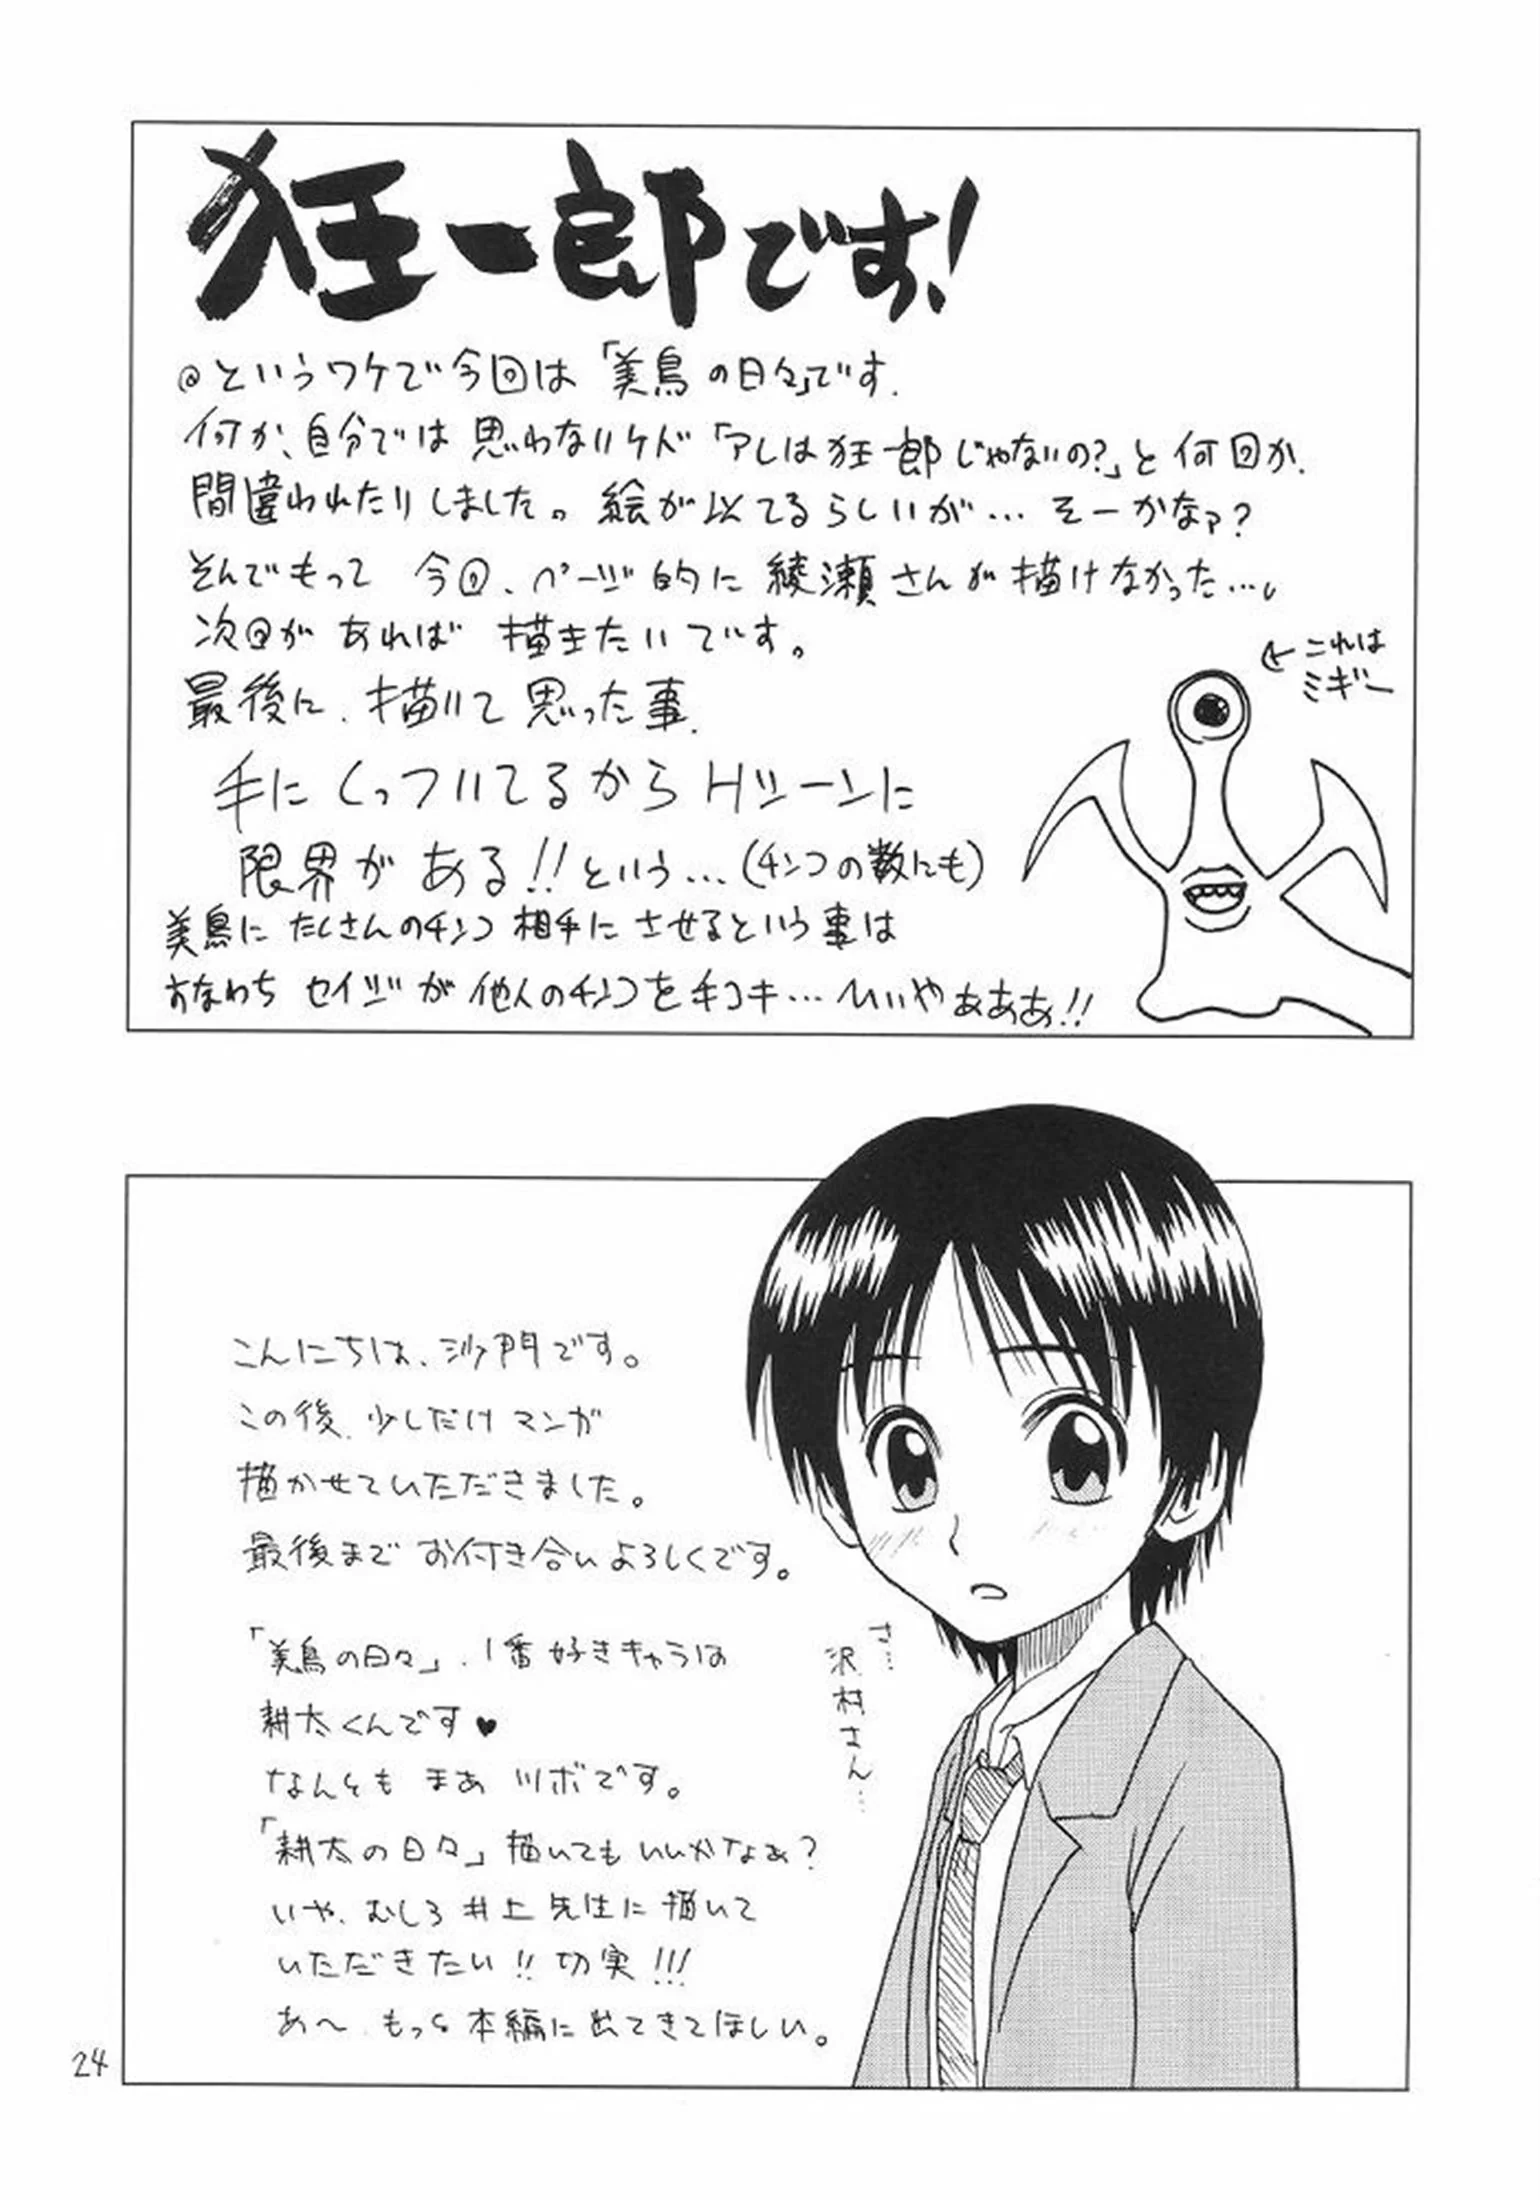 狂一郎です!
@というワケで今回は「美鳥の日々」です.
何か、自分では思わないケド「アレは狂一郎じゃないの?」と何回か.
間違われたりしました。絵が似てるらしいが…そーかなァ?
そんでもって 今回、ページ的に綾瀬さんが描けなかった…。
次回があれば 描きたいです。
最後に、描いて思った事.
手にくっついてるからHシーンに
限界がある!!という…(チンコの数にも)
美鳥にたくさんのチンコ相手にさせるという事は
すなわち セイジが他人のチンコを手コキ…いいやぁああ!!
←これは
ミギー
こんにちは、沙門です。
この後、少しだけマンガ
描かせていただきました。
最後まで お付き合いよろしくです。
「美鳥の日々」、1番好きキャラは
耕太くんです♥
なんともまあ ツボです。
「耕太の日々」描いてもいいかなぁ?
いや、むしろ井上先生に描いて
いただきたい!!切実!!!
あ〜、もっと本編に出てきてほしい。
さ…
沢村さん…
24